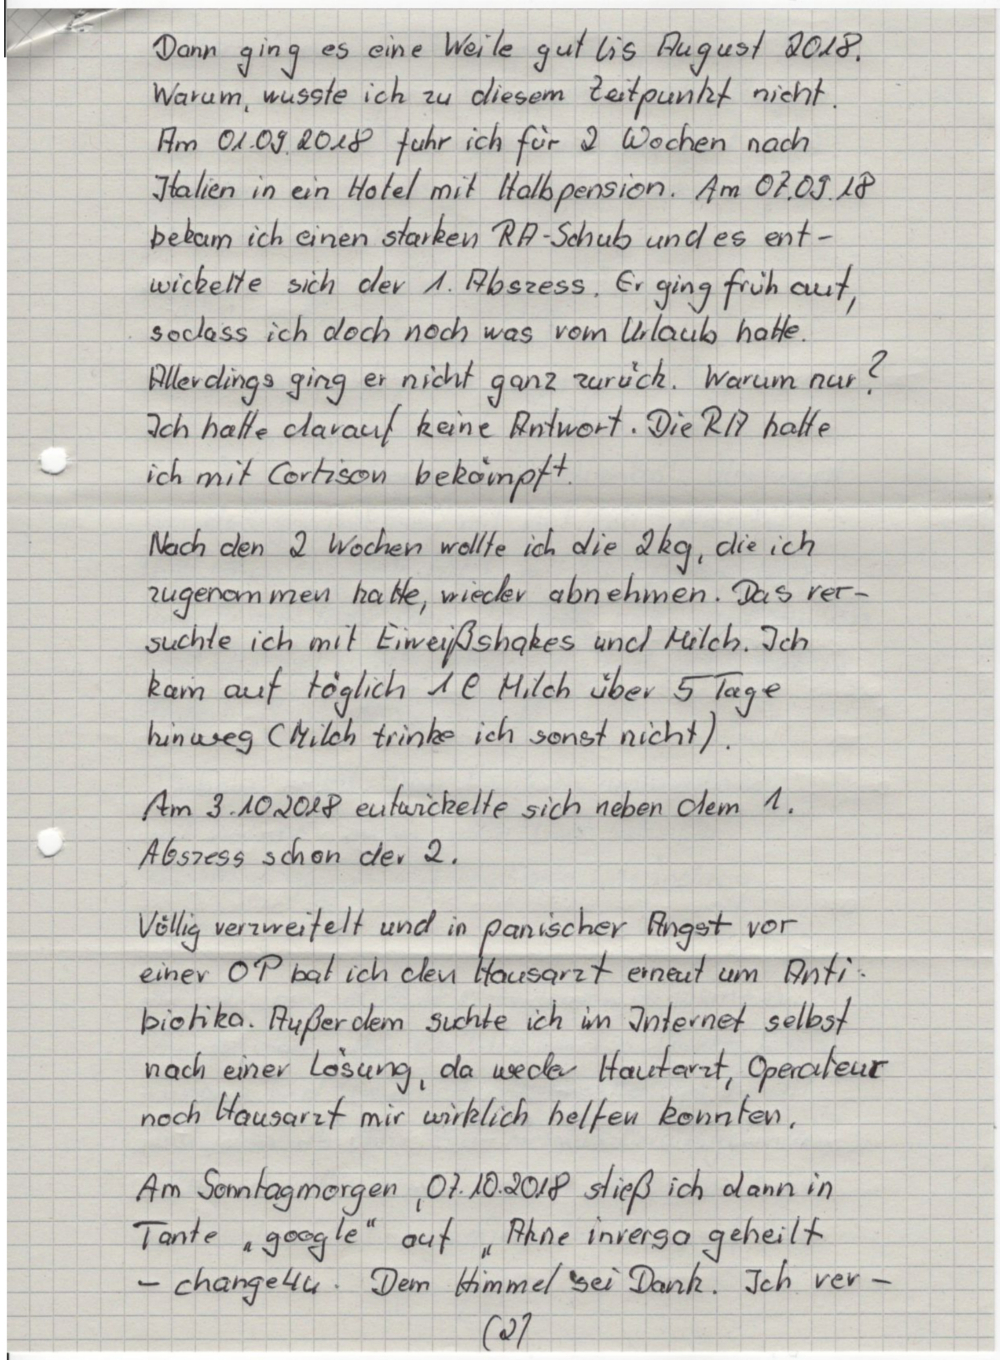 Dann ging es eine Weile gut bis August 2018.
Warum, wusste ich zu diesem Zeitpunkt nicht.
Am 01.09.2018 fuhr ich für 2 Wochen nach
Italien in ein Hotel mit Halbpension. Am 07.09.18
bekam ich einen starken RA-Schub und es ent-
wickelte sich der 1. Abszess. Er ging früh auf,
sodass ich doch noch was vom Urlaub hatte.
Allerdings ging er nicht ganz zurück. Warum nur?
Ich hatte darauf keine Antwort. Die RA hatte
ich mit Cortison bekämpft.
Nach den 2 Wochen wollte ich die 2kg, die ich
zugenommen hatte, wieder abnehmen. Das ver-
suchte ich mit Eiweißshakes und Milch. Ich
kam auf täglich 1 l Milch über 5 Tage
hinweg (Milch trinke ich sonst nicht).
Am 3.10.2018 entwickelte sich neben dem 1.
Abszess schon der 2.
Völlig verzweifelt und in panischer Angst vor
einer OP bat ich den Hausarzt erneut um Anti-
biotika. Außerdem suchte ich im Internet selbst
nach einer Lösung, da weder Hautarzt, Operateur
noch Hausarzt mir wirklich helfen konnten.
Am Sonntagmorgen, 07.10.2018 stieß ich dann in
Tante „google“ auf „Akne inversa geheilt
- change4u. Dem Himmel sei Dank. Ich ver-
(2)